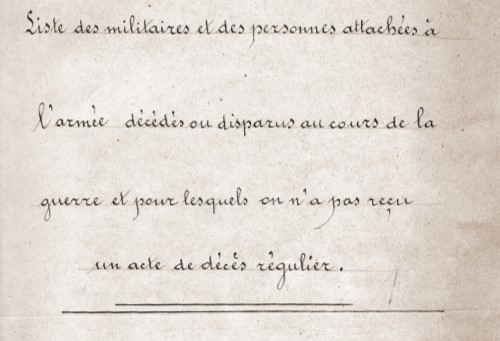 Liste des militaires et des personnes attachées à
l'armée décédés ou disparus au cours de la
guerre et pour lesquels on n'a pas reçu
un acte de décès régulier.